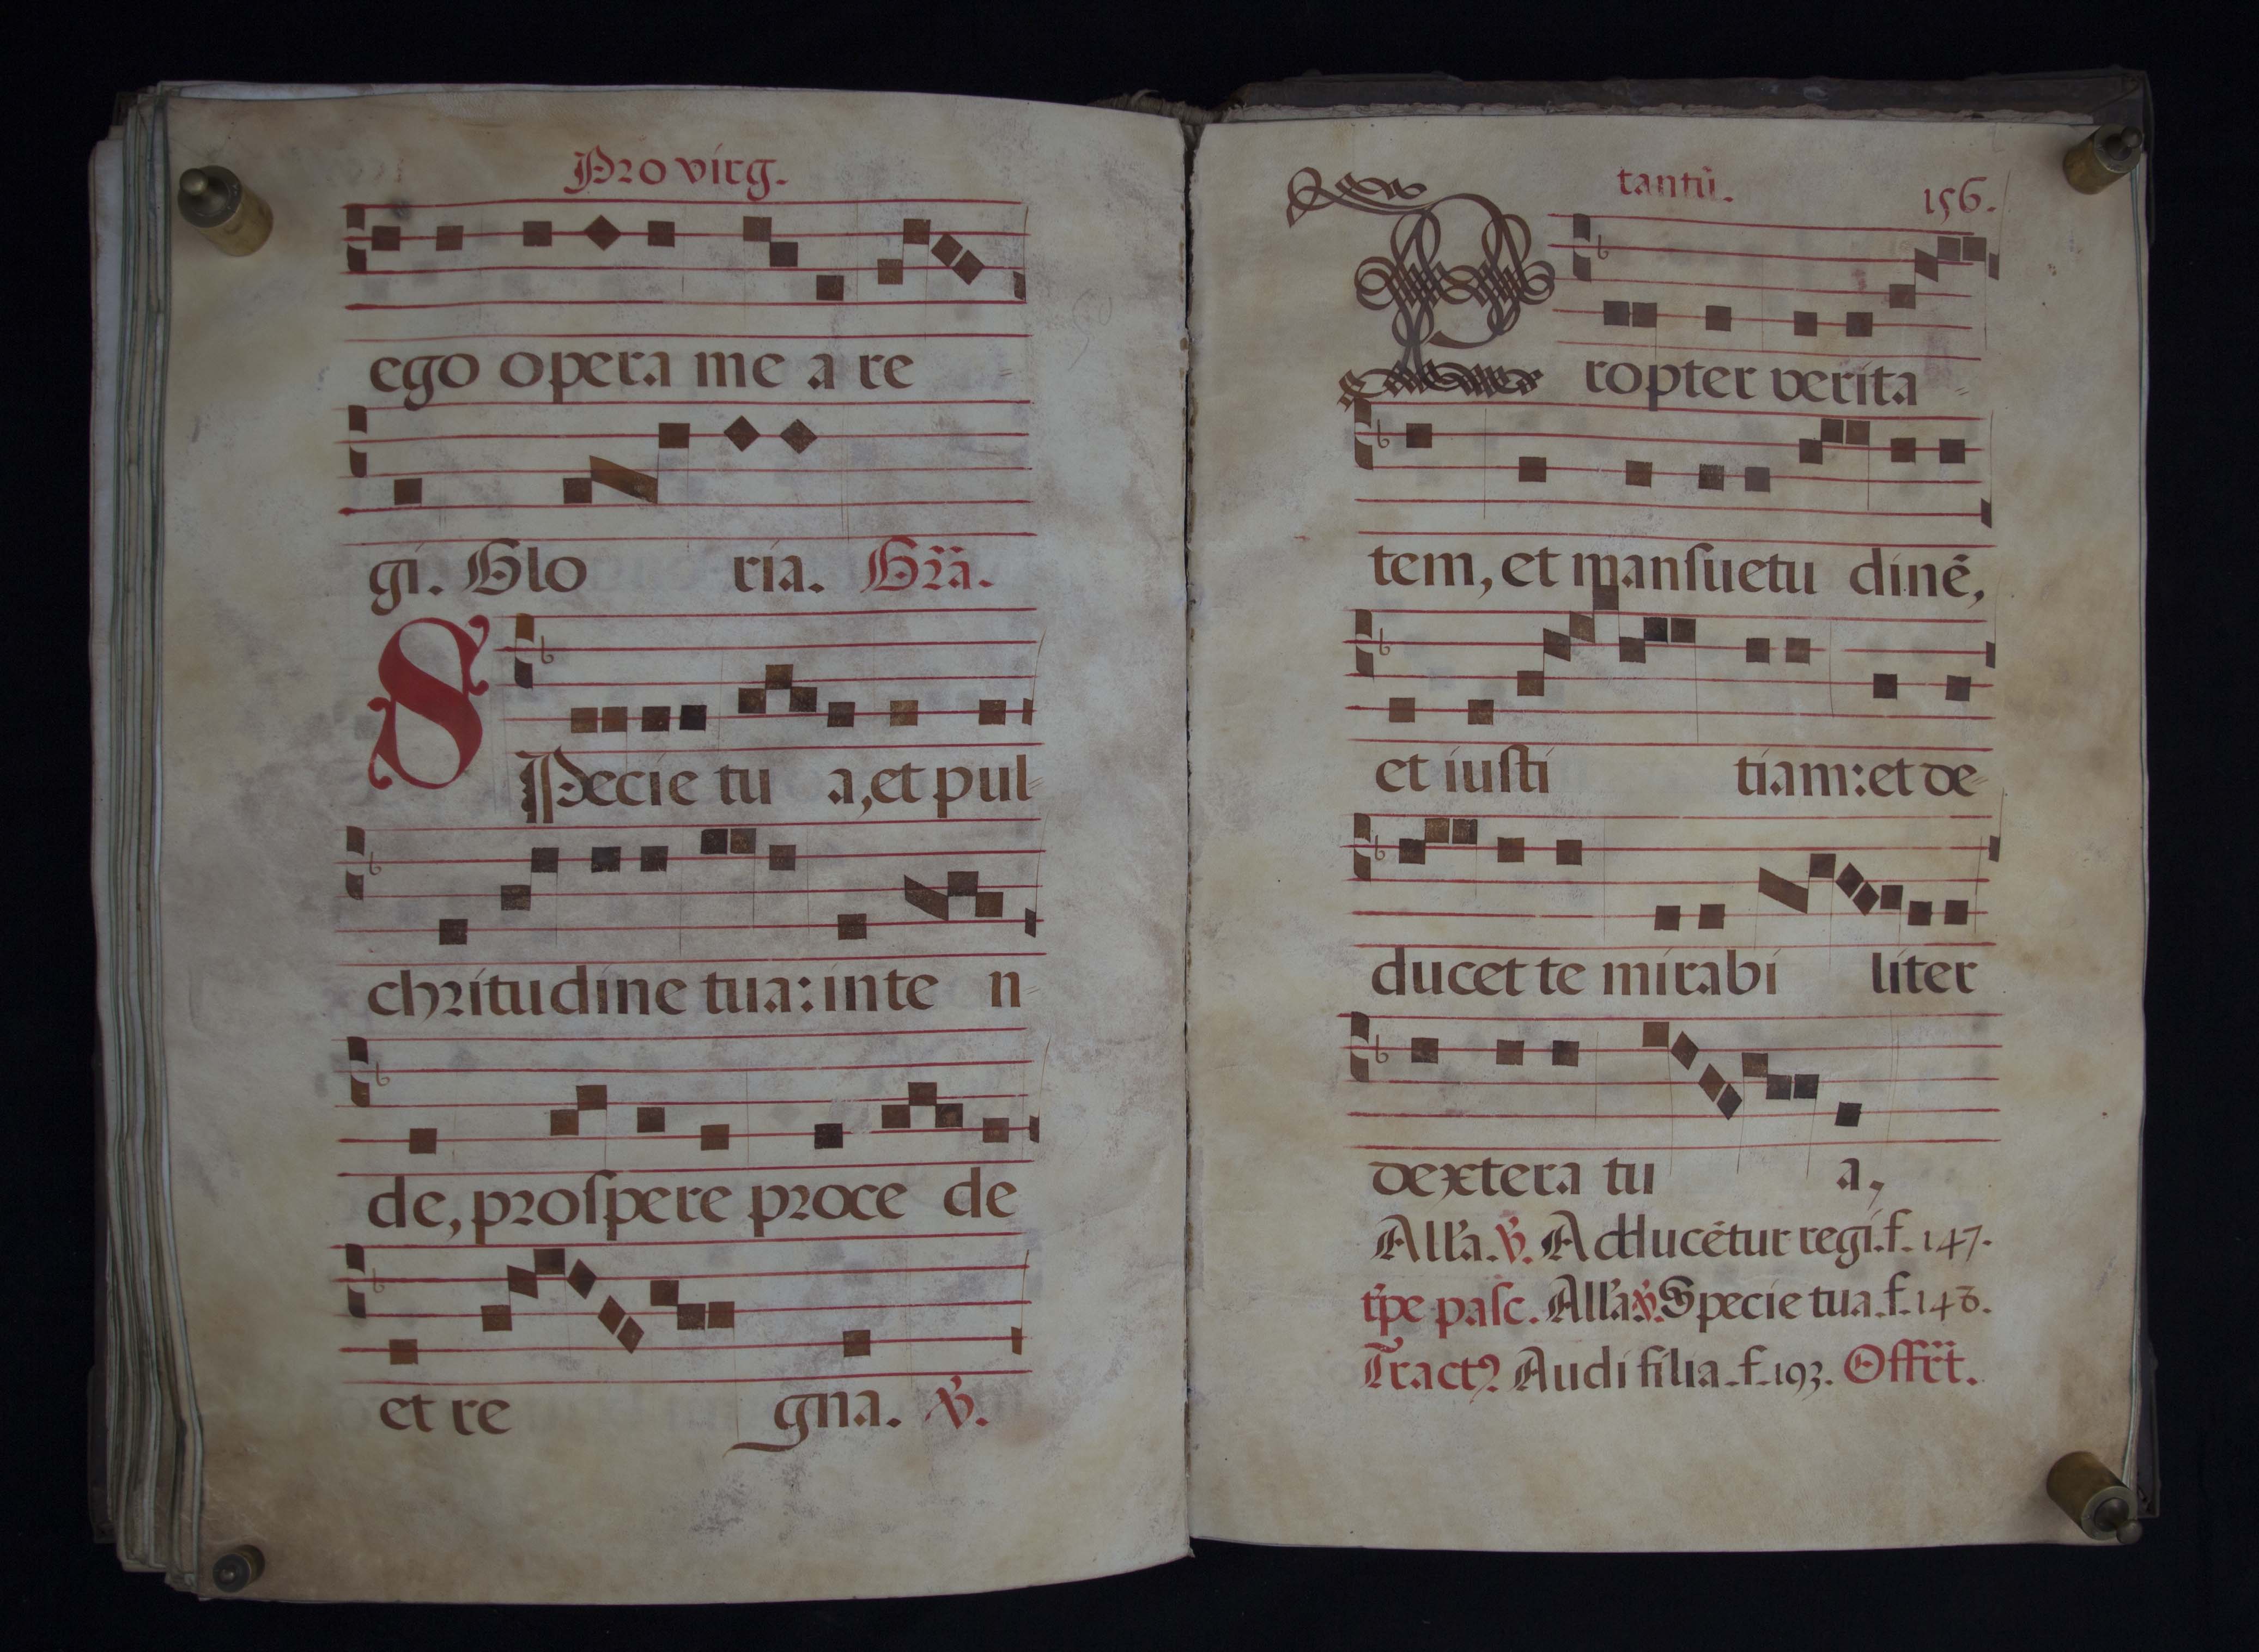 Pro virg.
ego opera me a re
gi. Glo ria. Gr̃ã.
SPecie tu a, et pul-
chritudine tua: inte n-
de, proſpere proce de
et re gna. ℣.
tantũ. 156.
Propter verita-
tem, et manſuetu dinẽ,
et iuſti tiam: et de-
ducet te mirabi liter
dextera tu a,
All'a. ℣. Adducẽtur regi. f. 147.
tp̃e paſc. All'a ℣. Specie tua. f. 148.
Tractꝰ Audi filia. f. 193. Offr̃t.